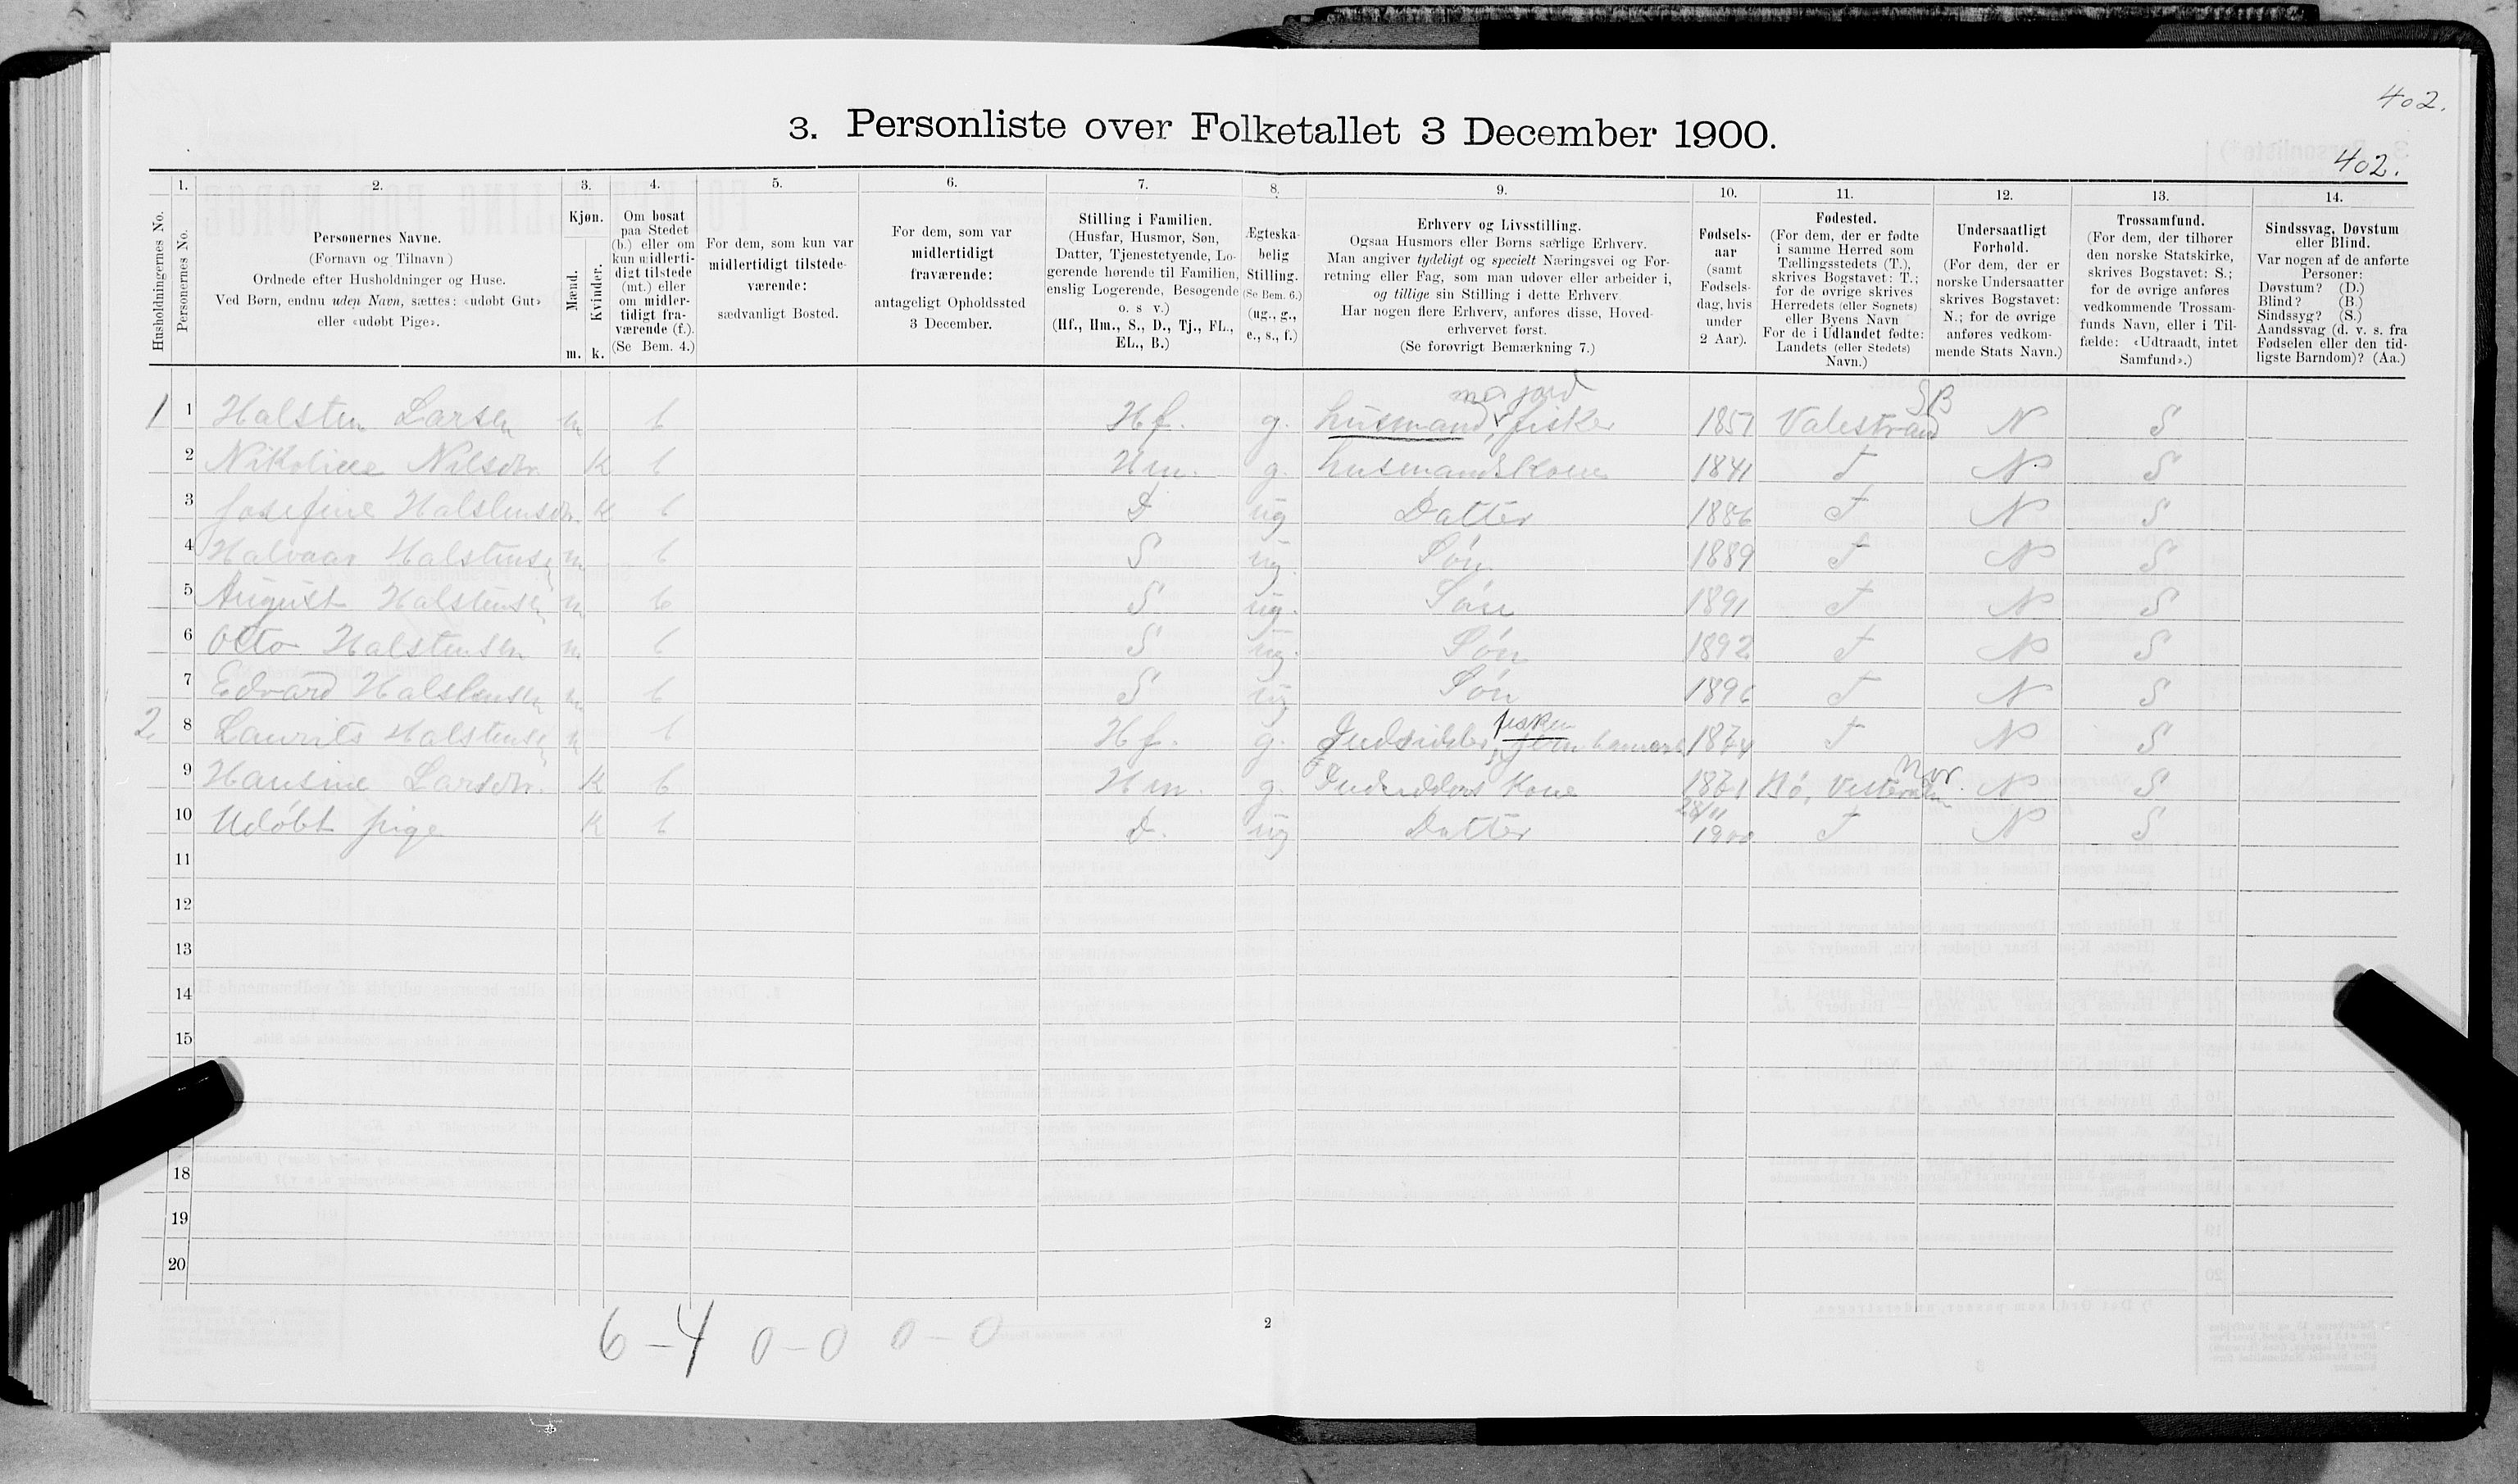 402.
3. Personliste over Folketallet 3 December 1900.
402.
1. 2. 3. 4. 5. 6. 7. 8. 9. 10. 11. 12. 13. 14.
Husholdningernes No.
Personernes No.
Personernes Navne.
(Fornavn og Tilnavn)
Ordnede efter Husholdninger og Huse.
Ved Børn, endnu uden Navn, sættes: «udøbt Gut»
eller «udøbt Pige».
Kjøn.
Mænd.
Kvinder.
m. k.
Om bosat
paa Stedet
(b.) eller om
kun midlerti-
digt tilstede
(mt.) eller
om midler-
tidigt fra-
værende (f.).
(Se Bem. 4.)
For dem, som kun var
midlertidigt tilstede-
værende:
sædvanligt Bosted.
For dem, som var
midlertidigt
fraværende:
antageligt Opholdssted
3 December.
Stilling i Familien.
(Husfar, Husmor, Søn,
Datter, Tjenestetyende, Lo-
gerende hørende til Familien,
enslig Logerende, Besøgende
o. s v.)
(Hf., Hm., S., D., Tj., FL.,
EL., B.)
Ægteska-
belig
Stilling.
(Se Bem. 6.)
(ug., g.,
e., s., f.)
Erhverv og Livsstilling.
Ogsaa Husmors eller Børns særlige Erhverv.
Man angiver tydeligt og specielt Næringsvei og For-
retning eller Fag, som man udøver eller arbeider i,
og tillige sin Stilling i dette Erhverv
Har nogen flere Erhverv, anføres disse, Hoved-
erhvervet først.
(Se forøvrigt Bemærkning 7.)
Fødsels-
aar
(samt
Fødsels-
dag, hvis
under
2 Aar).
Fødested.
(For dem, der er fødte
i samme Herred som
Tællingsstedets (T.),
skrives Bogstavet: T.;
for de øvrige skrives
Herredets (eller Sognets)
eller Byens Navn
For de i Udlandet fødte:
Landets (eller Stedets)
Navn.)
Undersaatligt
Forhold.
(For dem, der er
norske Undersaatter
skrives Bogstavet:
N.; for de øvrige
anføres vedkom-
mende Stats Navn.)
Trossamfund.
(For dem, der tilhører
den norske Statskirke,
skrives Bogstavet: S.;
for de øvrige anføres
vedkommende Trossam-
funds Navn, eller i Til-
fælde: «Udtraadt, intet
Samfund».)
Sindssvag, Døvstum
eller Blind.
Var nogen af de anførte
Personer:
Døvstum? (D.)
Blind? (B.)
Sindssyg? (S.)
Aandssvag (d. v. s. fra
Fødselen eller den tid-
ligste Barndom)? (Aa.)
m jord SB
1 1 Halsten Larsen m b Hf. g. husmand, fisker 1851 Valestrand N S
2 Nikoline Nilsdtr. K b Hm. g. husmandskone 1841 T N S
3 Josefine Halstensdtr. K b D ug Datter 1886 T N S
4 Halvaar Halstensen m b S ug. Søn 1889 T N S
5 August Halstensen m b S ug. Søn 1891 T N S
6 Otto Halstensen m b S ug. Søn 1892 T N S
7 Edvard Halstensen m b S ug Søn 1896 T N S
fisker
2 8 Laurits Halstensen m b Hf. g. Indsidder, 1874 T N S
9 Hansine Larsdtr. K b Hm. g. Kone 1871 Bø, N S
28/11
10 Udøbt pige K b D. ug Datter 1900 T N S
11
12
13
14
15
18
19
20
6 – 4 0 – 0 0 – 0
2